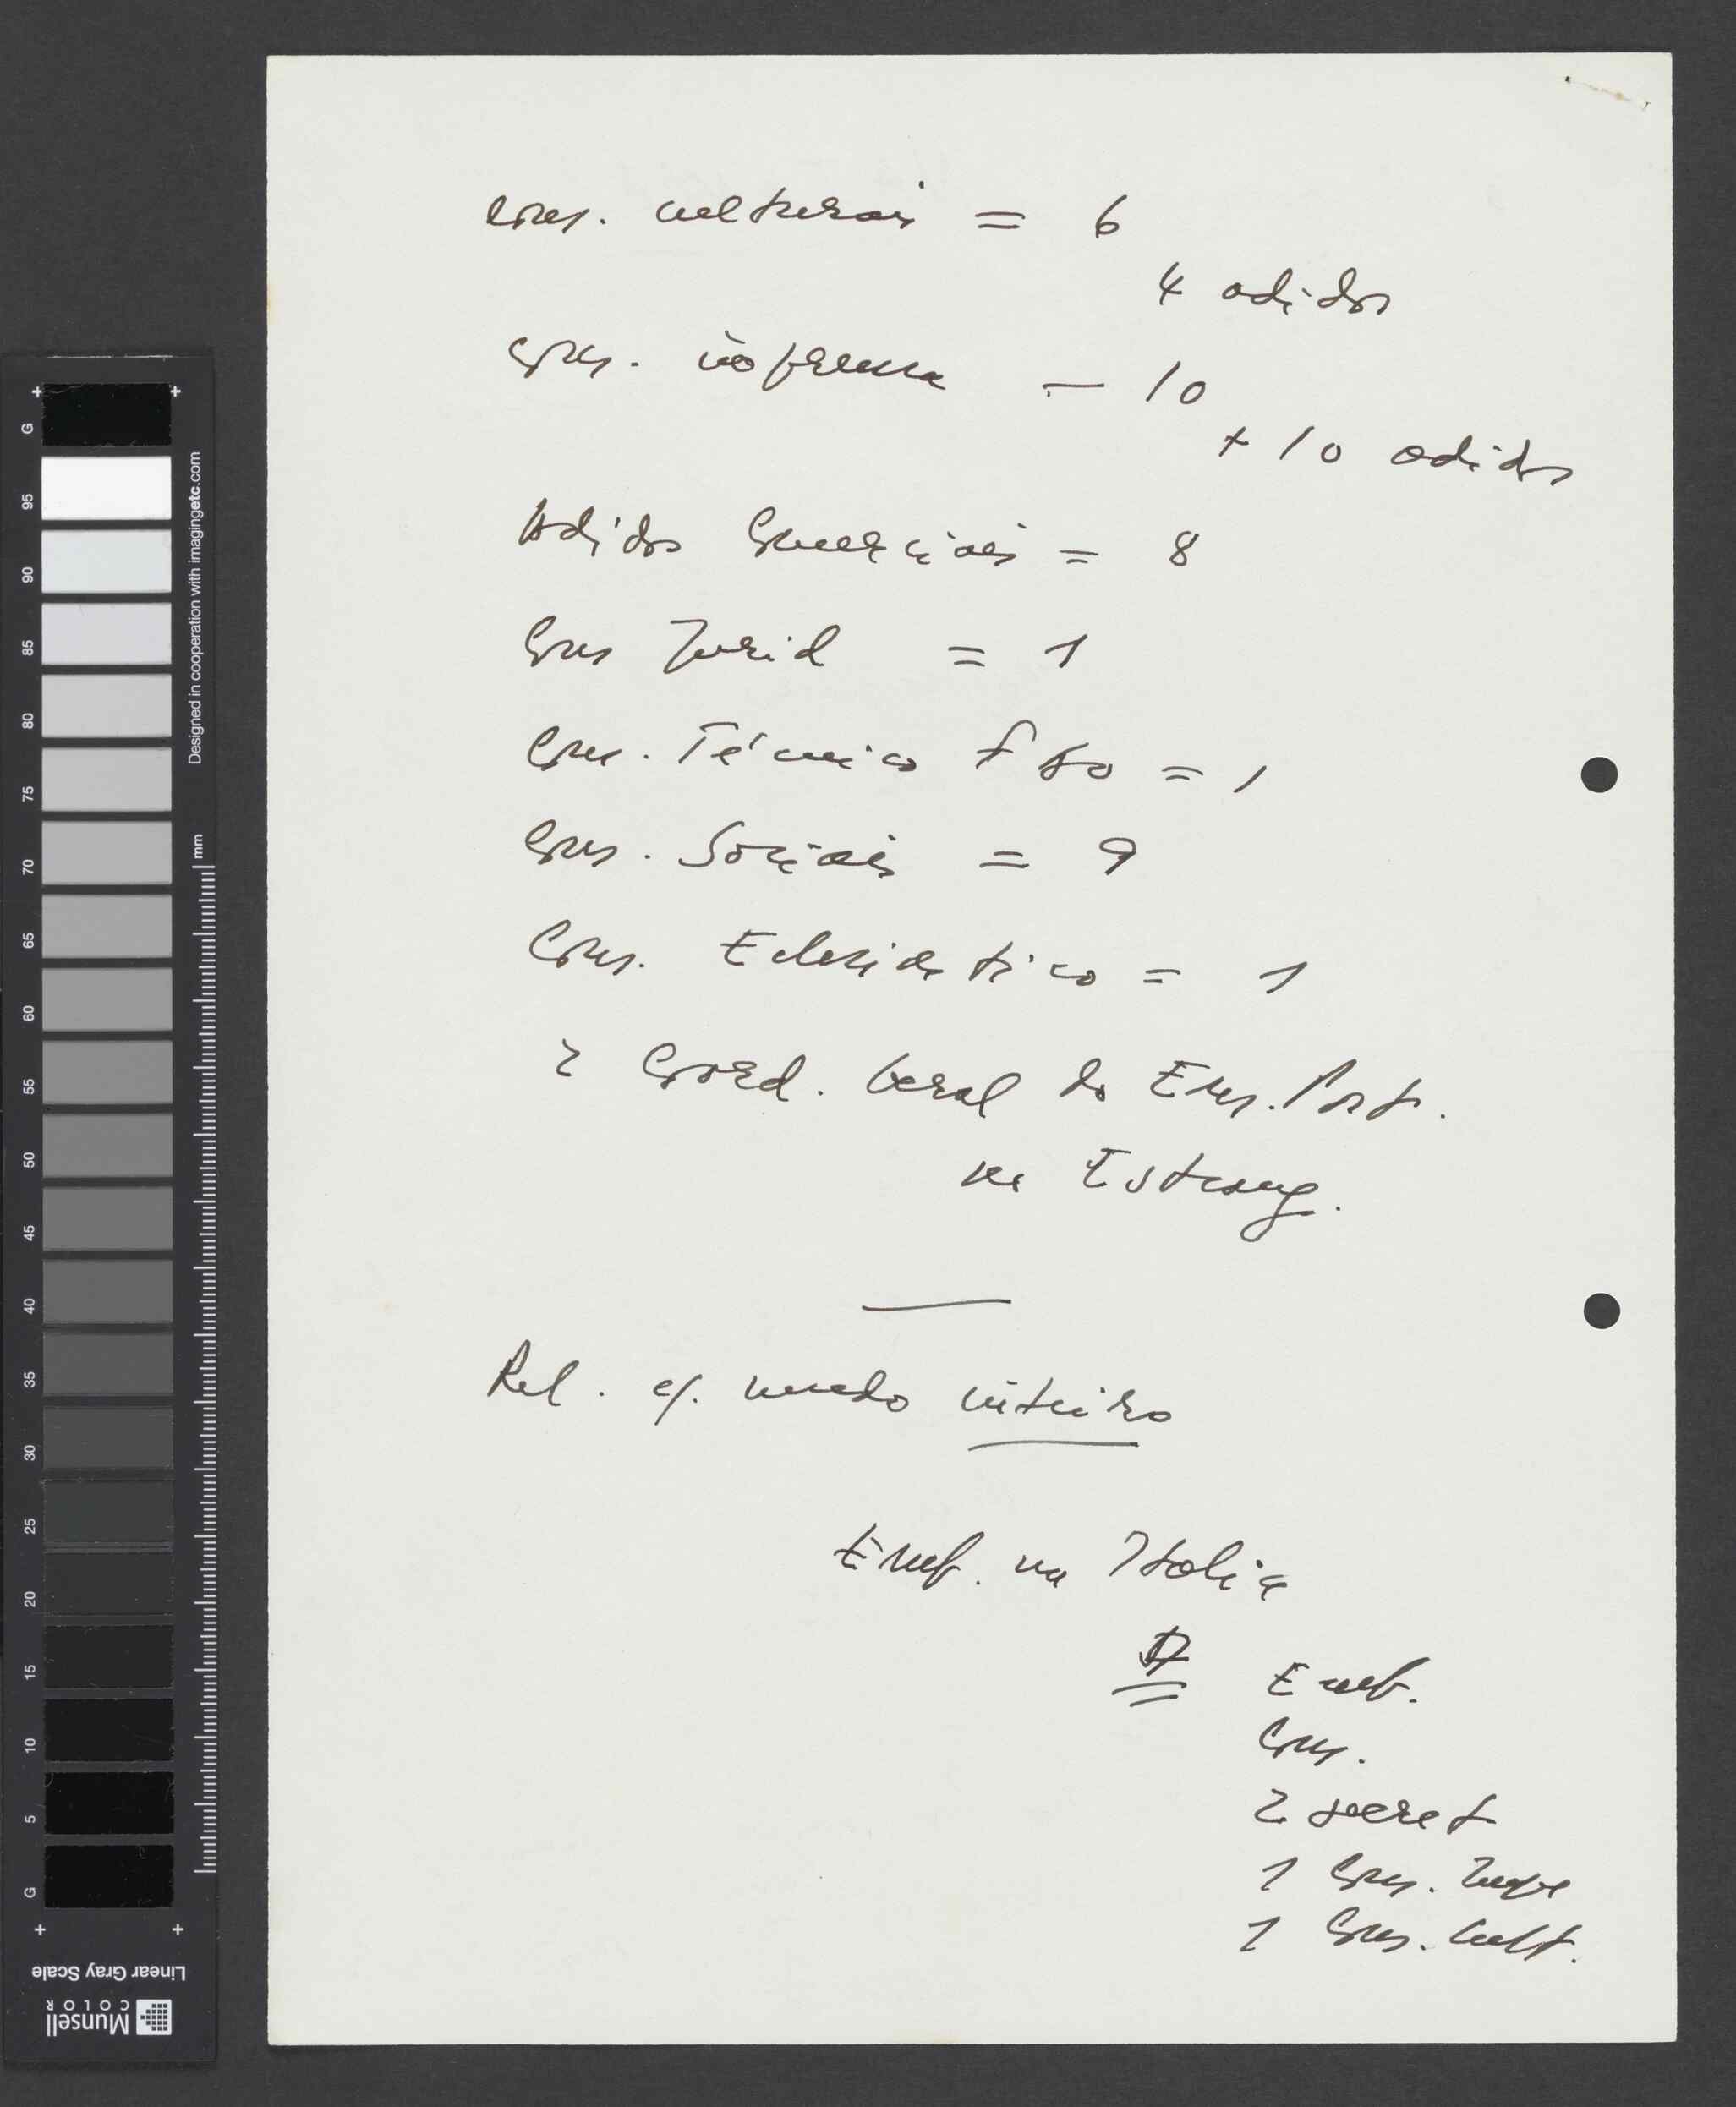 Cons. culturais = 6
4 adidos
Cons. imprensa — 10
+ 10 adidos
Adidos Comerciais = 8
Cons Jurid = 1
Cons. Técnico = 1
Cons. Sociais = 9
Cons. Eclesiástico = 1
2 Coord. Geral do Ens. Port.
no Estrang.
Rel. c/. mundo inteiro
Emb. na Italia
Emb.
Cons.
2 secret
1 Cons.
1 Cons. Cult.
G
95
90
85
80
75
70
65
60
55
50
45
40
35
30
25
20
15
10
5
G
mm
Designed in cooperation with imagingetc.com
Linear Gray Scale
Munsell
COLOR